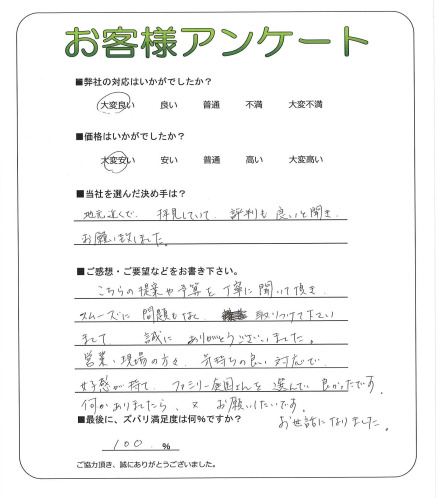 お客様アンケート
■弊社の対応はいかがでしたか？
大変良い 良い 普通 不満 大変不満
■価格はいかがでしたか？
大変安い 安い 普通 高い 大変高い
■当社を選んだ決め手は？
地元近くで、拝見していて、評判も良いと聞き、
お願い致しました。
■ご感想・ご要望などをお書き下さい。
こちらの提案や予算を丁寧に聞いて頂き、
スムーズに問題もなく、取りつけて下さい
まして 誠にありがとうございました。
営業・現場の方々、気持ちの良い対応で、
好感が持て、ファミリー庭園さんを選んで良かったです。
何かありましたら、又お願いしたいです。
お世話になりました。
■最後に、ズバリ満足度は何％ですか？
100 %
ご協力頂き、誠にありがとうございました。